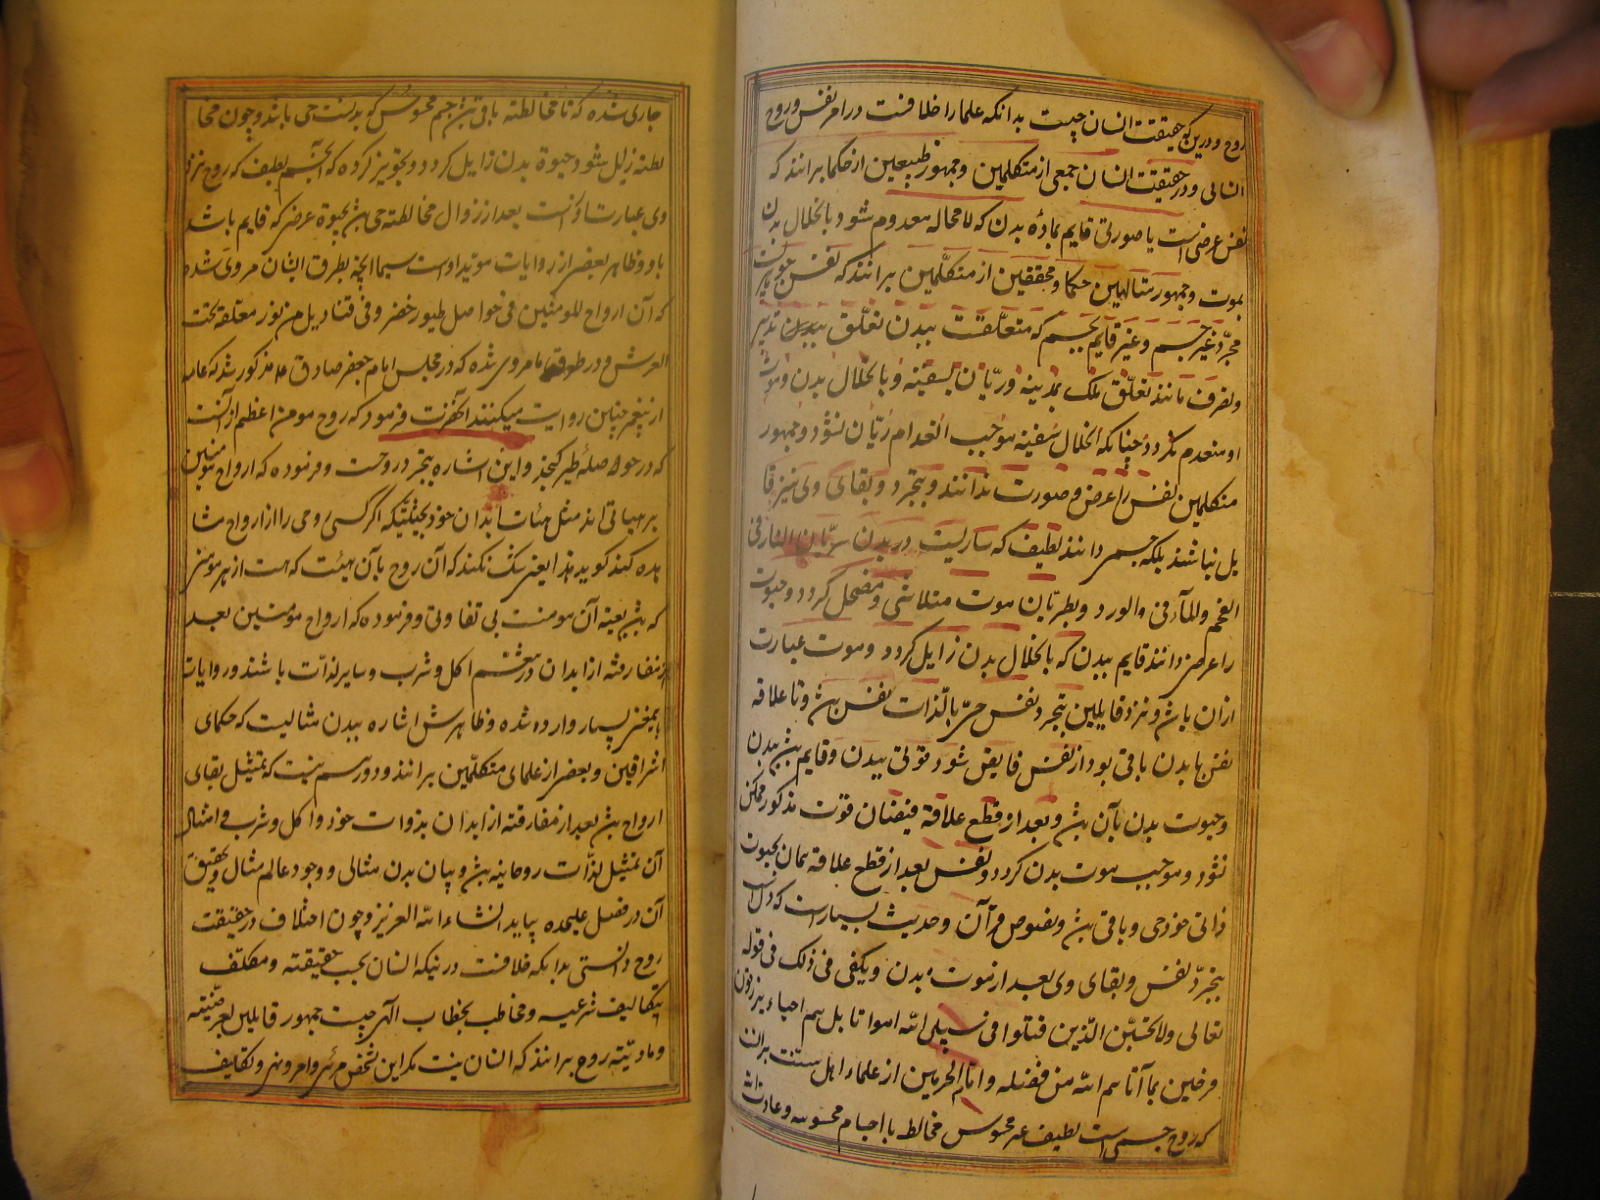 روح و درین که حقیقت انسان چیست بدانکه علما را خلافست در امر نفس و روح
انسانی و در حقیقت انسان جمعی از متکلمین و جمهور طبیعین از حکما برانند که
نفس عرضی است یا صورتی قایم بمادهٔ بدن که لامحاله معدوم شود بانحلال بدن
بموت و جمهور متالهین حکما و محققین از متکلمین برانند که نفس جوهریست
مجرد غیر جسم و غیر قایم بجسم که متعلقست ببدن تعلق تدبیر
و تصرف مانند تعلق ملک بمدینه و ربان بسفینه و بانحلال بدن و موت
او منعدم نگردد چنانکه انحلال سفینه موجب انعدام ربان نشود و جمهور
متکلمین نفس را عرض و صورت ندانند و بتجرد و بقای وی نیز قا
یل نباشند بلکه جسمی دانند لطیف که ساریست در بدن سریان النار فی
الفحم و الماء فی الورد و بطریان موت متلاشی و مضمحل گردد و حیوت
را عرض دانند قایم ببدن که بانحلال بدن زایل گردد و موت عبارت
ازان باشد و نزد قایلین بتجرد نفس حی بالذات نفس باشد و تا علاقه
نفس با بدن باقی بود از نفس فایض شود قوتی ببدن و قایم باشد ببدن
و حیوت بدن بآن باشد و بعد از قطع علاقه فیضان قوت مذکور ممکن
نشود و موجب موت بدن گردد و نفس بعد از قطع علاقه همان بحیوت
ذاتی خود حی و باقی باشد و نصوص قرآن و حدیث بسیار است که دال است
بتجرد نفس و بقای وی بعد از موت بدن و یکفی فی ذلک فی قوله
تعالی ولا تحسبن الذین قتلوا فی سبیل الله امواتا بل هم احیاء یرزقون
فرحین بما آتاهم الله من فضله و امام الحرمین از علماء اهل سنت برانست
که روح جسمی است لطیف غیر محسوس مخالط با اجسام محسوسه و عادت الله
جاری شده که تا مخالطته باقی باشد جسم محسوس که بدنست حی باشد و چون مخا
لطته زایل شود حیوة بدن زایل گردد و تجویز کرده که آن جسم لطیف که روح نزد
وی عبارت از آنست بعد از زوال مخالطته حی باشد بحیوة عرضی که قایم باشد
باو و ظاهر بعضی از روایات موید اوست سیما آنچه بطرق ایشان مروی شده
که ان ارواح المومنین فی حواصل طیور خضر و فی قنادیل من نور معلقة تحت
العرش و در طرق ما مروی شده که در مجلس امام جعفر صادق ع مذکور شد که عامه
از پیغمبر چنین روایت میکنند آنحضرت فرمود که روح مومن اعظم از آنست
که در حوصلهٔ طیر گنجد و این اشاره بتجرد روحست و فرموده که ارواح مومنین
بر هیاتی اند مثل هیئات ابدان خود بحیثیتیکه اگر کسی روحی را از ارواح مشا
هده کند گوید هذا یعنی شک نکند که آن روح بآن هیئت که هست از هر مومنی
که باشد بعینه آن مومنست بی تفاوتی و فرموده که ارواح مومنین بعد
از مفارقته از ابدان در اکل و شرب و سایر لذات باشند و روایات
باینمعنی بسیار وارد شده و ظاهرش اشاره ببدن مثالیست که حکمای
اشراقین و بعضی از علمای متکلمین برانند و دور هم نیست که تمثیل بقای
ارواح باشد بعد از مفارقته از ابدان بذوات خود و اکل و شرب و امثال
آن تمثیل لذات روحانیه باشد و بیان بدن مثالی و وجود عالم مثال و تحقیق
آن در فصل علیحده بیاید انشاء الله العزیز و چون اختلاف در حقیقت
روح دانستی بدانکه خلافست در نیکه انسان بحسب حقیقته و مکلف
بتکالیف شرعیه و مخاطب بخطاب الهی چیست جمهور قایلین بعرضیته
و مادیته روح برانند که انسان نیست مگر این شخص مرئی و امر و نهی و تکالیف